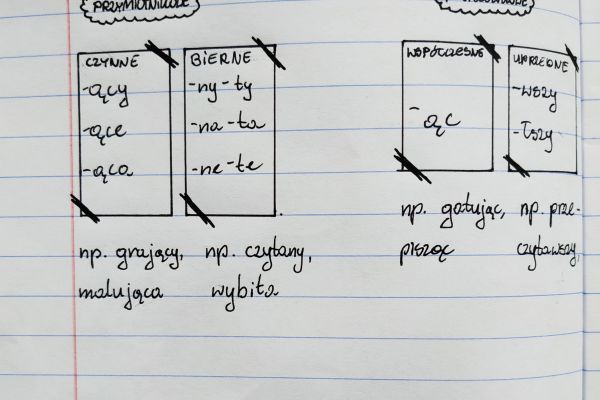 PRZYMIOTNIKOWE
CZYNNE
-ący
-ące
-ąca
np. grający,
malująca
BIERNE
-ny -ty
-na -ta
-ne -te
np. czytany,
wybita
WSPÓŁCZESNE
-ąc
np. gotując,
pisząc
UPRZEDNIE
-wszy
-łszy
np. prze-
czytawszy,